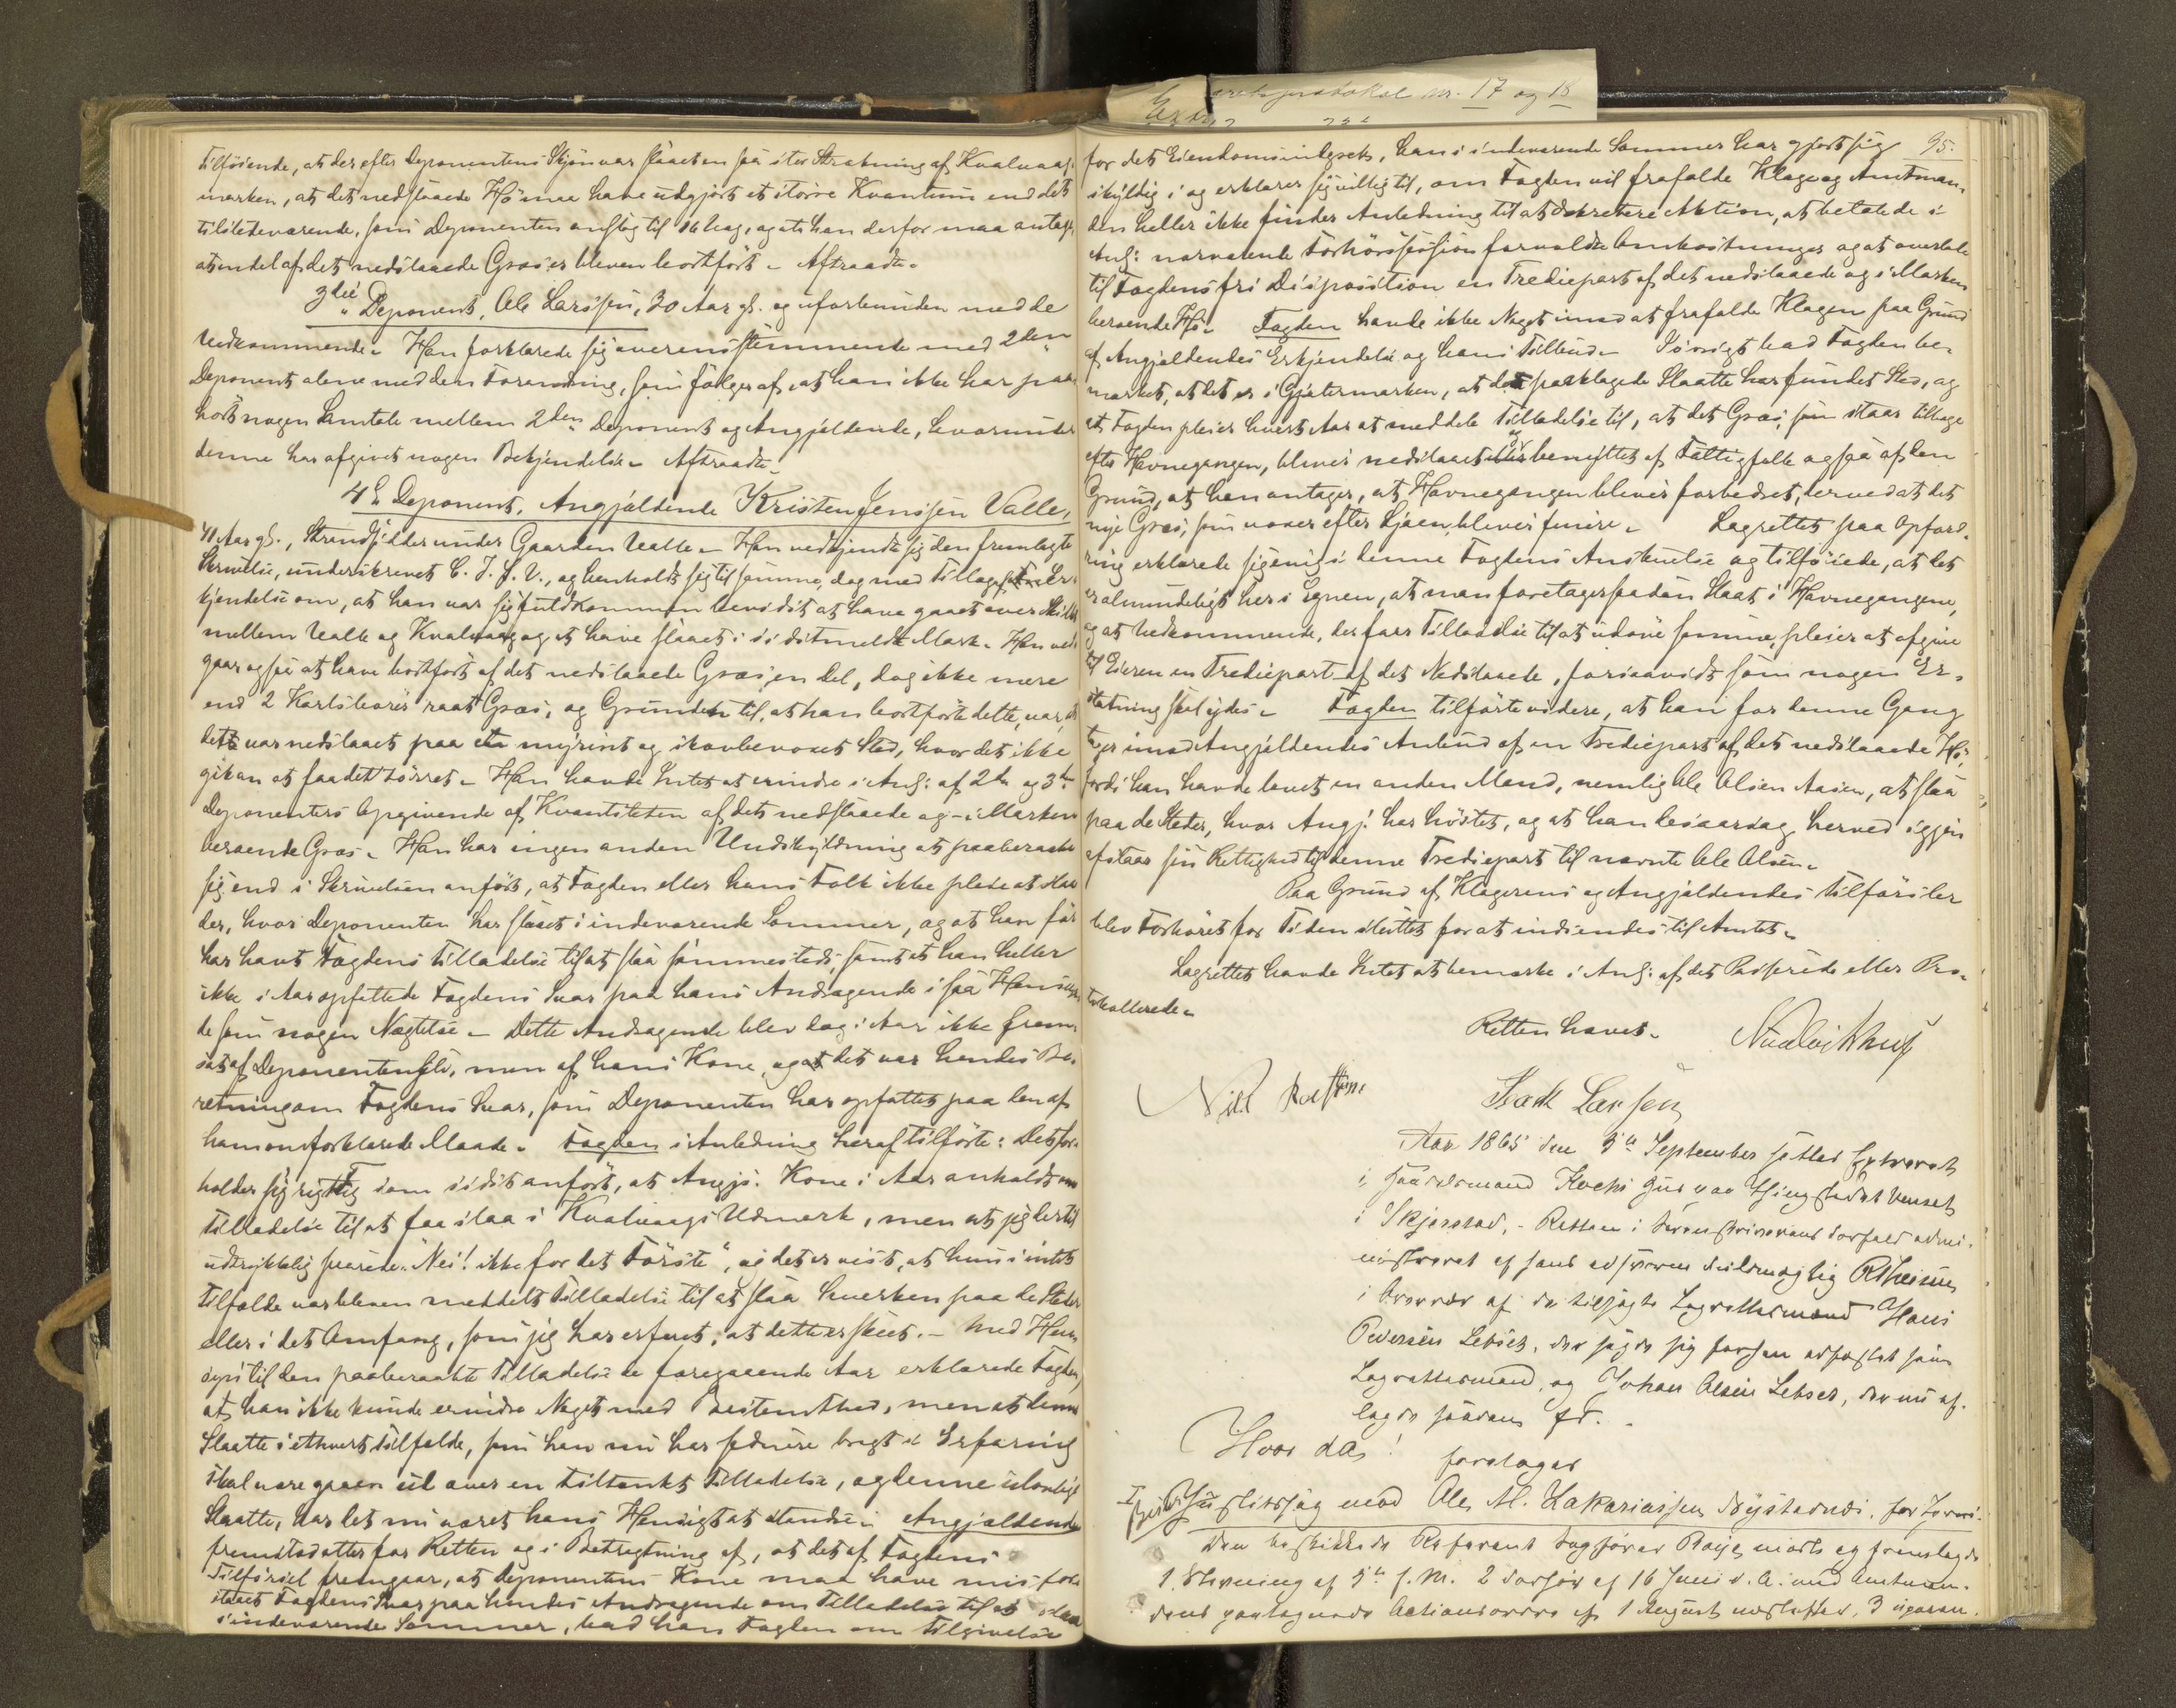 Extraretsprotokol Nr. 17 og 18
tilføiende, at der efter Deponentens Skjøn var slaaet en saa stor Strækning af Kvalvaag-
marken, at det nedslaaede Hø maa have udgjort et større Kvantum end det
tilstedeværende, som Deponenten anslog til 16 Vog, og at han derfor maa antage,
at en del af det nedslaaede Græs er bleven bortført. - Aftraadte.
3die Deponent, Ole Larssen, 30 Aar gl. og uforbunden med de
Vedkommende. Han forklarede sig overensstemmende med 2den
Deponent alene med den Forandring, som følger af, at han ikke har paa-
hørt nogen Samtale mellem 2den Deponent og Angjældende, hvorunder
denne har afgivet nogen Bekjendelse. - Aftraadte.
4de Deponent, Angjældende Kristen Jenssen Valle,
41 Aar gl., Strandsidder under Gaarden Valle. - Han vedkjendte sig den fremlagte
Skrivelse, underskrevet C. J. S. V., og henholdt sig til samme, dog med Tillæg Er-
kjendelse om, at han var sig fuldkommen bevidst at have gaaet over Skillet
mellem Valle og Kvalvaag og at have slaaet i sidstmeldte Mark. Han ved-
gaar ogsaa at have bortført af det nedslaaede Græs en Del, dog ikke mere
end 2 Karlsbører raat Græs, og Grunden til, at han bortførte dette, var, at
dette var nedslaaet paa et myrint og skovbevoxet Sted, hvor det ikke
gik an at faa det tørret. - Han havde Intet at erindre i Anl: af 2den og 3die
Deponenters Opgivende af Kvantiteten af det nedslaaede og i Marken
beroende Græs. Han har ingen anden Undskyldning at paaberaabe
sig end i Skrivelsen anført, at Fogden eller hans Folk ikke pleie at slaa
der, hvor Deponenten har slaaet i indeværende Sommer, og at han før
har havt Fogdens Tilladelse til at slaa sammesteds, samt at han heller
ikke i Aar opfattede Fogdens Svar paa hans Andragende i saa Henseen-
de som nogen Nægtelse. - Dette Andragende blev dog i Aar ikke frem-
sat af Deponenten selv, men af hans Kone, og at det var hendes Be-
retning om Fogdens Svar, som Deponenten har opfattet paa den af
ham omforklarede Maade. Fogden i Anledning heraf tilførte: Det for-
holder sig rigtig som sidst anført, at Angj: Kone i Aar anholdt om
Tilladelse til at faa slaa i Kvalvaags Udmark, men at jeg dertil
udtrykkelig svarede "Nei! ikke for det Første", og det er vist, at hun i intet
Tilfælde var bleven meddelt Tilladelse til at slaa hverken paa de Steder
eller i det Omfang, som jeg har erfaret, at dette er skeet. - Med Hen-
syn til den paaberaabte Tilladelse de foregaaende Aar erklærede Fogden,
at han ikke kunde erindre Noget med Bestemthed, men at denne
Slaatte i ethvert Tilfælde, som han nu har senere bragt i Erfaring
skal være gaaet ud over en tiltænkt Tilladelse, og denne ulovlige
Slaatte, har det nu været hans Hensigt at standse. Angjældende
fremstod atter for Retten og i Betragtning af, at det af Fogdens
Tilførsel fremgaar, at Deponentens Kone maa have misfor-
staaet Fogdens Svar paa hendes Andragende om Tilladelse til at slaa
i indeværende Sommer, bad han Fogden om Tilgivelse
95.
for det Eiendomsindgreb, han i indeværende Sommer har gjort sig
skyldig i og erklærer sig villig til, om Fogden vil frafalde Klage og Amtman-
den heller ikke finder Anledning til at dekretere Aktion, at betale de i
Anl: nærværende Forhørssession forvoldte Omkostninger og at overlade
til Fogdens fri Disposition en Trediepart af det nedslaaede og i Marken
beroende Hø. - Fogden havde ikke Noget imod at frafalde Klagen paa Grund
af Angjældendes Erkjendelse og hans Tilbud. - Iøvrigt bad Fogden be-
mærket, at det er i Gjætermarken, at den paaklagede Slaatte har fundet Sted, og
at Fogden pleier hvert Aar at meddele Tilladelse til, at det Græs, som staar tilbage
efter Havnegangen, bliver nedslaaet og benyttet af Fattigfolk ogsaa af den
Grund, at han antager, at Havnegangen bliver forbedret, derved at det
nye Græs, som voxer efter Ljaaen, bliver finere. - Lagrettet paa Opford-
ring erklærede sig enig i denne Fogdens Anskuelse og tilføiede, at det
er almindeligt her i Egnen, at man foretager saadan Slaat i Havnegangene,
og at Vedkommende, der faar Tilladelse til at udøve samme, pleier at afgive
til Eieren en Trediepart af det Nedslaaede, forsaavidt som nogen Er-
statning skal ydes. - Fogden tilførte videre, at han for denne Gang
tager imod Angjældendes Anbud af en Trediepart af det nedslaaede Hø,
fordi han havde lovet en anden Mand, nemlig Ole Olsen Aasen, at slaa
paa de Steder, hvor Angj: har høstet, og at han desaarsag herved igjen
afstaar sin Rettighed til denne Trediepart til nævnte Ole Olsen.
Paa Grund af Klagerens og Angjældendes Tilførsler
blev Forhøret for Tiden sluttet for at indsendes til Amtet.
Lagrettet havde Intet at bemærke i Anl: af det Passerede eller Pro-
tokollerede.
Retten hævet.
Isach Larsen
Aar 1865 den 5te September sattes Extraret
i Gaardmand Kochs Hus paa Pladset Venset
i Skjerstad, - Retten i Sorenskriverens Forfald admi-
nistreret af hans edsvorne Fuldmægtig R Theisen
i Overvær af de tilsagte Lagrettesmænd Hans
Pedersen Leðset, der sagde sig forhen edfæstet som
Lagrettesmand, og Johan Olsen Ledset, der nu af-
lagde saadan Ed.
Hvor da!
foretoges
Justitssag mod Ole M. Zakariassen Nystadnæs, for Tyveri.
Den beskikkede Referent Sagfører Røye mødte og fremlagde
1 Stevning af 5te f. M. 2 Forhør af 16 Juni d. A. med Amtman-
dens paategnede Actionsordre af 1 August næstefter, 3